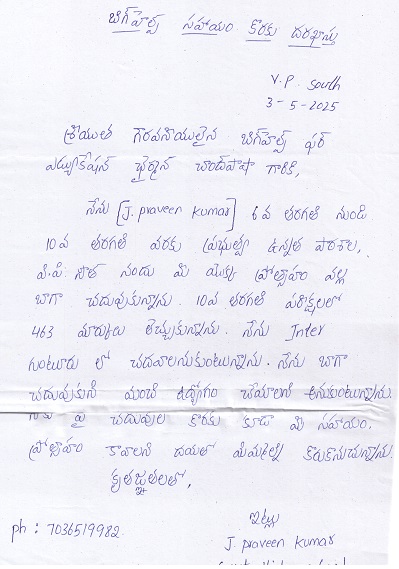 బిగ్‌హెల్ప్ సహాయం కొరకు దరఖాస్తు
V.P. South
3-5-2025
శ్రీయుత గౌరవనీయులైన బిగ్‌హెల్ప్ ఫర్
ఎడ్యుకేషన్ ఛైర్మన్ చాంద్‌పాషా గారికి,
నేను [J. praveen kumar] 6వ తరగతి నుండి
10వ తరగతి వరకు ప్రభుత్వ ఉన్నత పాఠశాల,
వి.పి. సౌత్ నందు మీ యొక్క ప్రోత్సాహం వల్ల
బాగా చదువుకున్నాను. 10వ తరగతి పరీక్షలలో
463 మార్కులు తెచ్చుకున్నాను. నేను Inter
గుంటూరు లో చదవాలనుకుంటున్నాను. నేను బాగా
చదువుకుని మంచి ఉద్యోగం చేయాలని అనుకుంటున్నాను.
నాకు పై చదువుల కొరకు కూడా మీ సహాయం,
ప్రోత్సాహం కావాలని దయతో మిమ్మల్ని కోరుకొనుచున్నాను.
కృతజ్ఞతలతో,
ఇట్లు
ph : 7036519982
J. praveen kumar